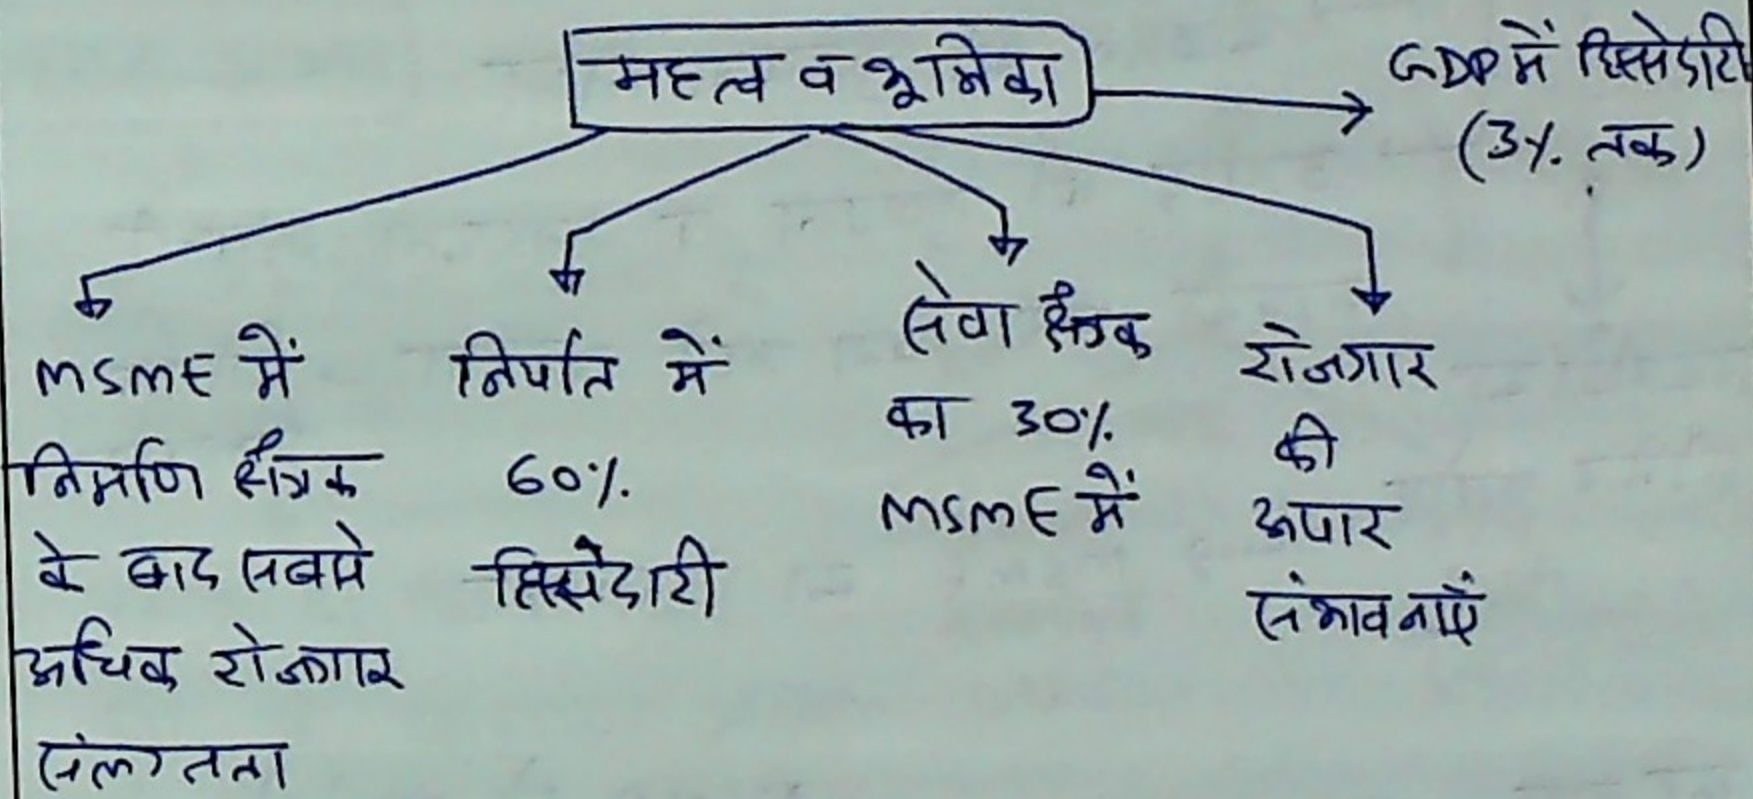 महत्व व भूमिका
GDP में हिस्सेदारी
(3%. तक)
MSME में
निर्माण क्षेत्रक
के बाद सबसे
अधिक रोजगार
संलग्नता
निर्यात में
60%.
हिस्सेदारी
सेवा क्षेत्रक
का 30%.
MSME में
रोजगार
की
अपार
संभावनाएँ